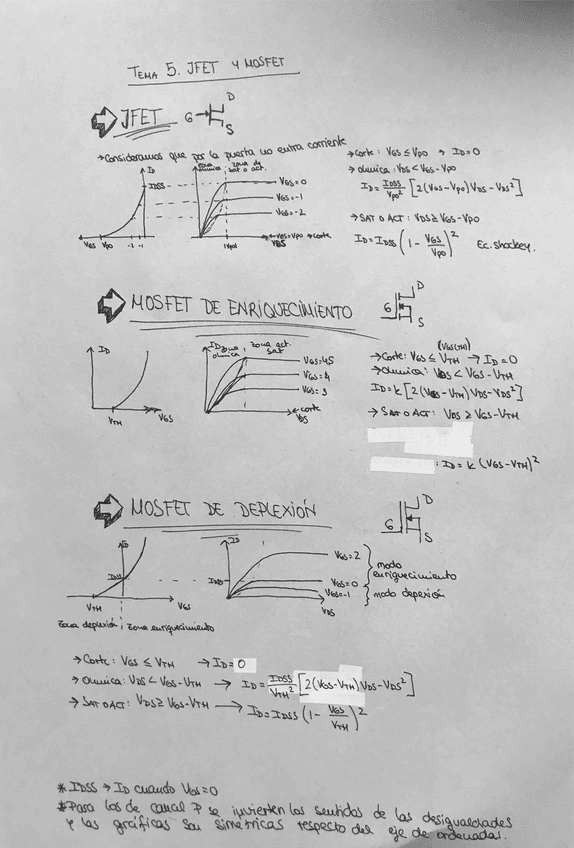 TEMA 5. JFET Y MOSFET
JFET
G
D
S
→ Consideramos que por la puerta no entra corriente
→ Corte: VGS ≤ VPO → ID=0
→ Óhmica: VDS < VGS-VPO
ID = IDSS/VPO² [2(VGS-VPO)VDS-VDS²]
→ SAT O ACT: VDS ≥ VGS-VPO
ID = IDSS (1 - VGS/VPO)² Ec. shockey.
ID
IDSS
VGS VPO -2 -1
zona óhmica zona de sat o act.
VGS=0
VGS=-1
VGS=-2
VGS=VPO → corte
|VPO| VDS
MOSFET DE ENRIQUECIMIENTO
G
D
S
ID
VTH VGS
ID zona óhmica, zona act. sat
VGS=4,5
VGS=4
VGS=3
← corte
VDS
(VGS(TH))
→ Corte: VGS ≤ VTH → ID=0
→ Óhmica: VDS < VGS-VTH
ID = k [2(VGS-VTH)VDS-VDS²]
→ SAT O ACT: VDS ≥ VGS-VTH
: ID = k (VGS-VTH)²
MOSFET DE DEPLEXIÓN
G
D
S
ID
IDSS
VTH VGS
Zona deplexión Zona enriquecimiento
ID
IDSS
VGS=2
VGS=0
VGS=-1
VDS
modo enriquecimiento
modo deplexión
→ Corte: VGS ≤ VTH → ID= 0
→ Óhmica: VDS < VGS-VTH → ID = IDSS/VTH² [2(VGS-VTH)VDS-VDS²]
→ SAT O ACT: VDS ≥ VGS-VTH → ID = IDSS (1 - VGS/VTH)²
* IDSS → ID cuando VGS=0
* Para los de canal P se invierten los sentidos de las desigualdades
y las gráficas son simétricas respecto del eje de ordenadas.